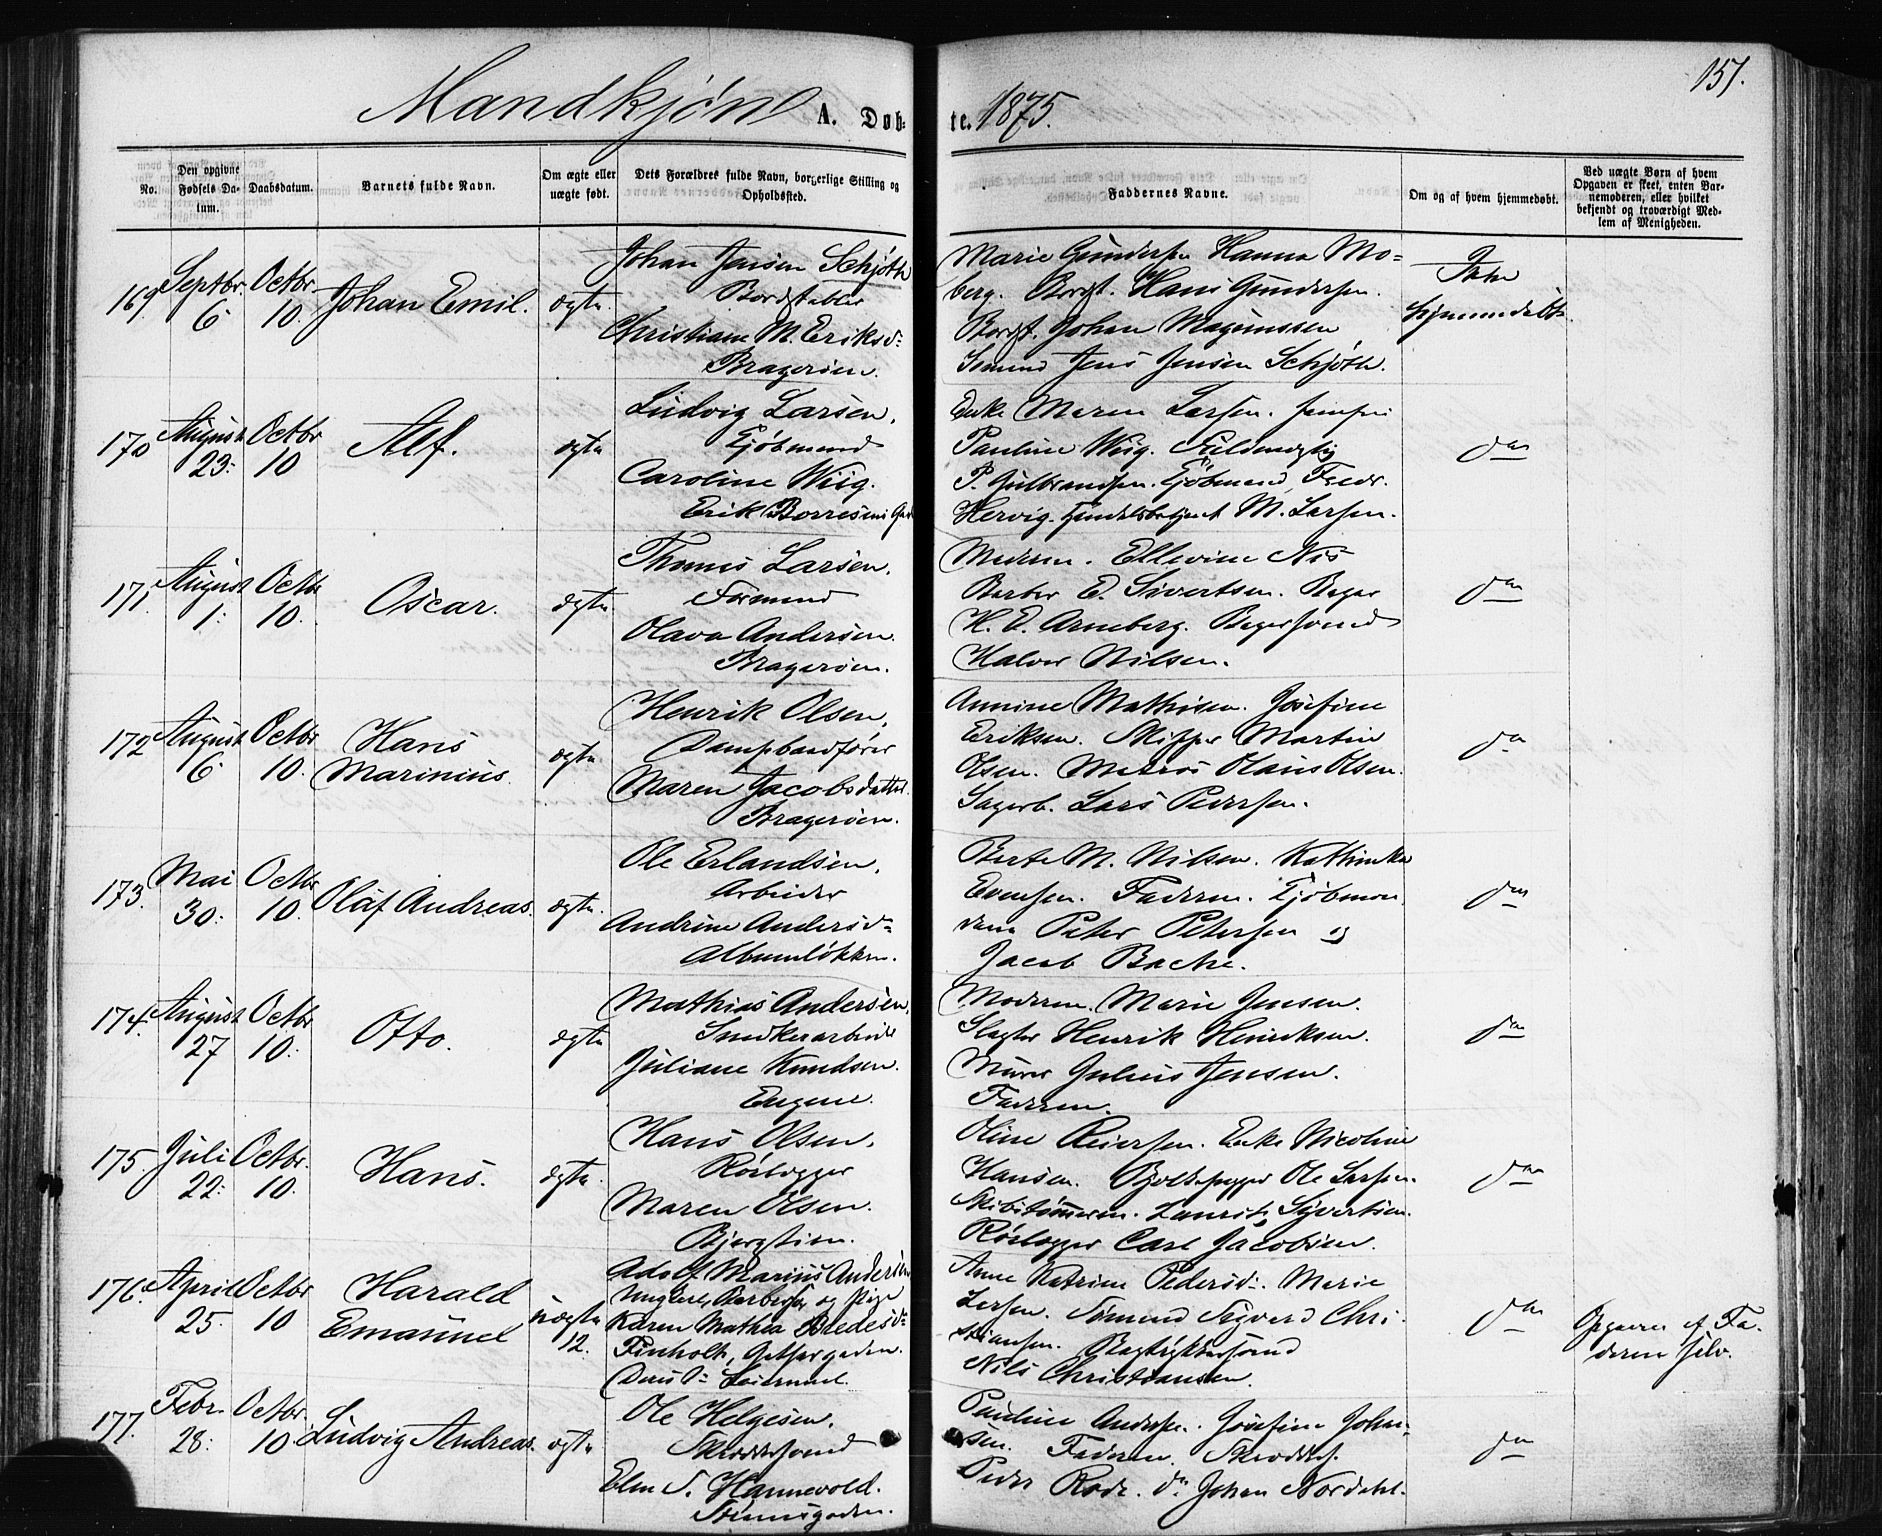 Mandkjøn A. Døb-
te. 1875.
151.
No.
Den opgivne Fødsels Da-
tum.
Daabsdatum.
Barnets fulde Navn.
Om ægte eller
uægte født.
Dets Forældres fulde Navn, borgerlige Stilling og
Opholdssted.
Faddernes Navne.
Om og af hvem hjemmedøbt.
Ved uægte Børn af hvem
Opgaven er skeet, enten Bar-
nemoderen, eller hvilket
bekjendt og troværdigt Med-
lem af Menigheden.
169 Septbr. 6 Octbr. 10. Johan Emil. ægte
Johan Jensen Schjøth
Bordstabler
Christiane M. Eriksd:
Bragerøen.
Marie Gundersen Hanna Mo=
berg. Hans Gundersen.
Johan Magnussen
Sømand Jens Jensen Schjøth.
Ikke
hjemmedøbt.
170 August 23: Octbr 10 Alf. ægte
Ludvig Larsen,
Kjøbmand
Caroline Wiig.
Erik Børresens Gade
Enke Maren Larsen. Jomfru
Pauline Wiig. Fuldmægtig
P. Gulbrandsen. Kjøbmand Fredr.
Hervig. Handelsbetjent M. Larsen.
do
171. August 1: Octbr 10. Oscar. ægte
Thomas Larsen.
Formand
Olava Andersen.
Bragerøen.
Moderen. Ellevine Nis
Barber E. Sivertsen. Bager
H. E. Arneberg. Bagersvend
Halvor Nilsen.
do
172 August 6 Octbr 10. Hans
Marinius. ægte
Henrik Olsen,
Dampbaadfører
Maren Jacobsdatter.
Bragerøen.
Annine Mathisen. Josefine
Eriksen. Skipper Martin
Olsen. Matros Olaus Olsen.
Sagarb. Lars Pedersen.
do
173. Mai 30: Octbr 10. Olaf Andreas. ægte.
Ole Erlandsen.
Arbeider
Andrine Andersd=
Albumløkken.
Berte M. Nilsen. Kathinka
Evensen. Faderen. Kjøbmæn
dene Peter Petersen og
Jacob Bache.
do
174. August 27 Octbr 10: Otto. ægte
Mathias Andersen,
Snedkerarbeider
Juliane Knudsen.
Engene.
Moderen. Marie Jensen.
Slagter Henrik Henriksen.
Murer Julius Jensen.
Faderen.
do
175. Juli 22: Octbr. 10. Hans. ægte.
Hans Olsen.
Rørlægger
Maren Olsen.
Bjergstien.
Oline Reiersen. Enke Nicoline
Hansen. Ole Larsen.
Skibstømmerm. Laurits Sivertsen.
Rørlægger Carl Jacobsen.
do
176. April 25. Octbr 10 Harald
Emanuel uægte
12.
Adolf Marius Andersen
Ungkarl, Barbersv. og Pige
Karen Mathea Bredesd=
Finholt, Gade.
Deres 1: Leiermaal.
Anne Katrine Pedersd:. Marie
Larsen. Sømand Sigvard Chri-
stiansen. Bogtrykkersvend
Nils Christiansen.
do
Opgaven af Fa-
deren selv.
177. Febr. 28: Octbr. 10. Ludvig Andreas. ægte
Ole Helgesen.
Skræddersvend
Elen S. Hannevold.
Strømsgaden.
Pauline Andersen. Josefine Johan-
sen. Faderen. Skræddersv.
Peder Rode. do Johan Nordahl.
do